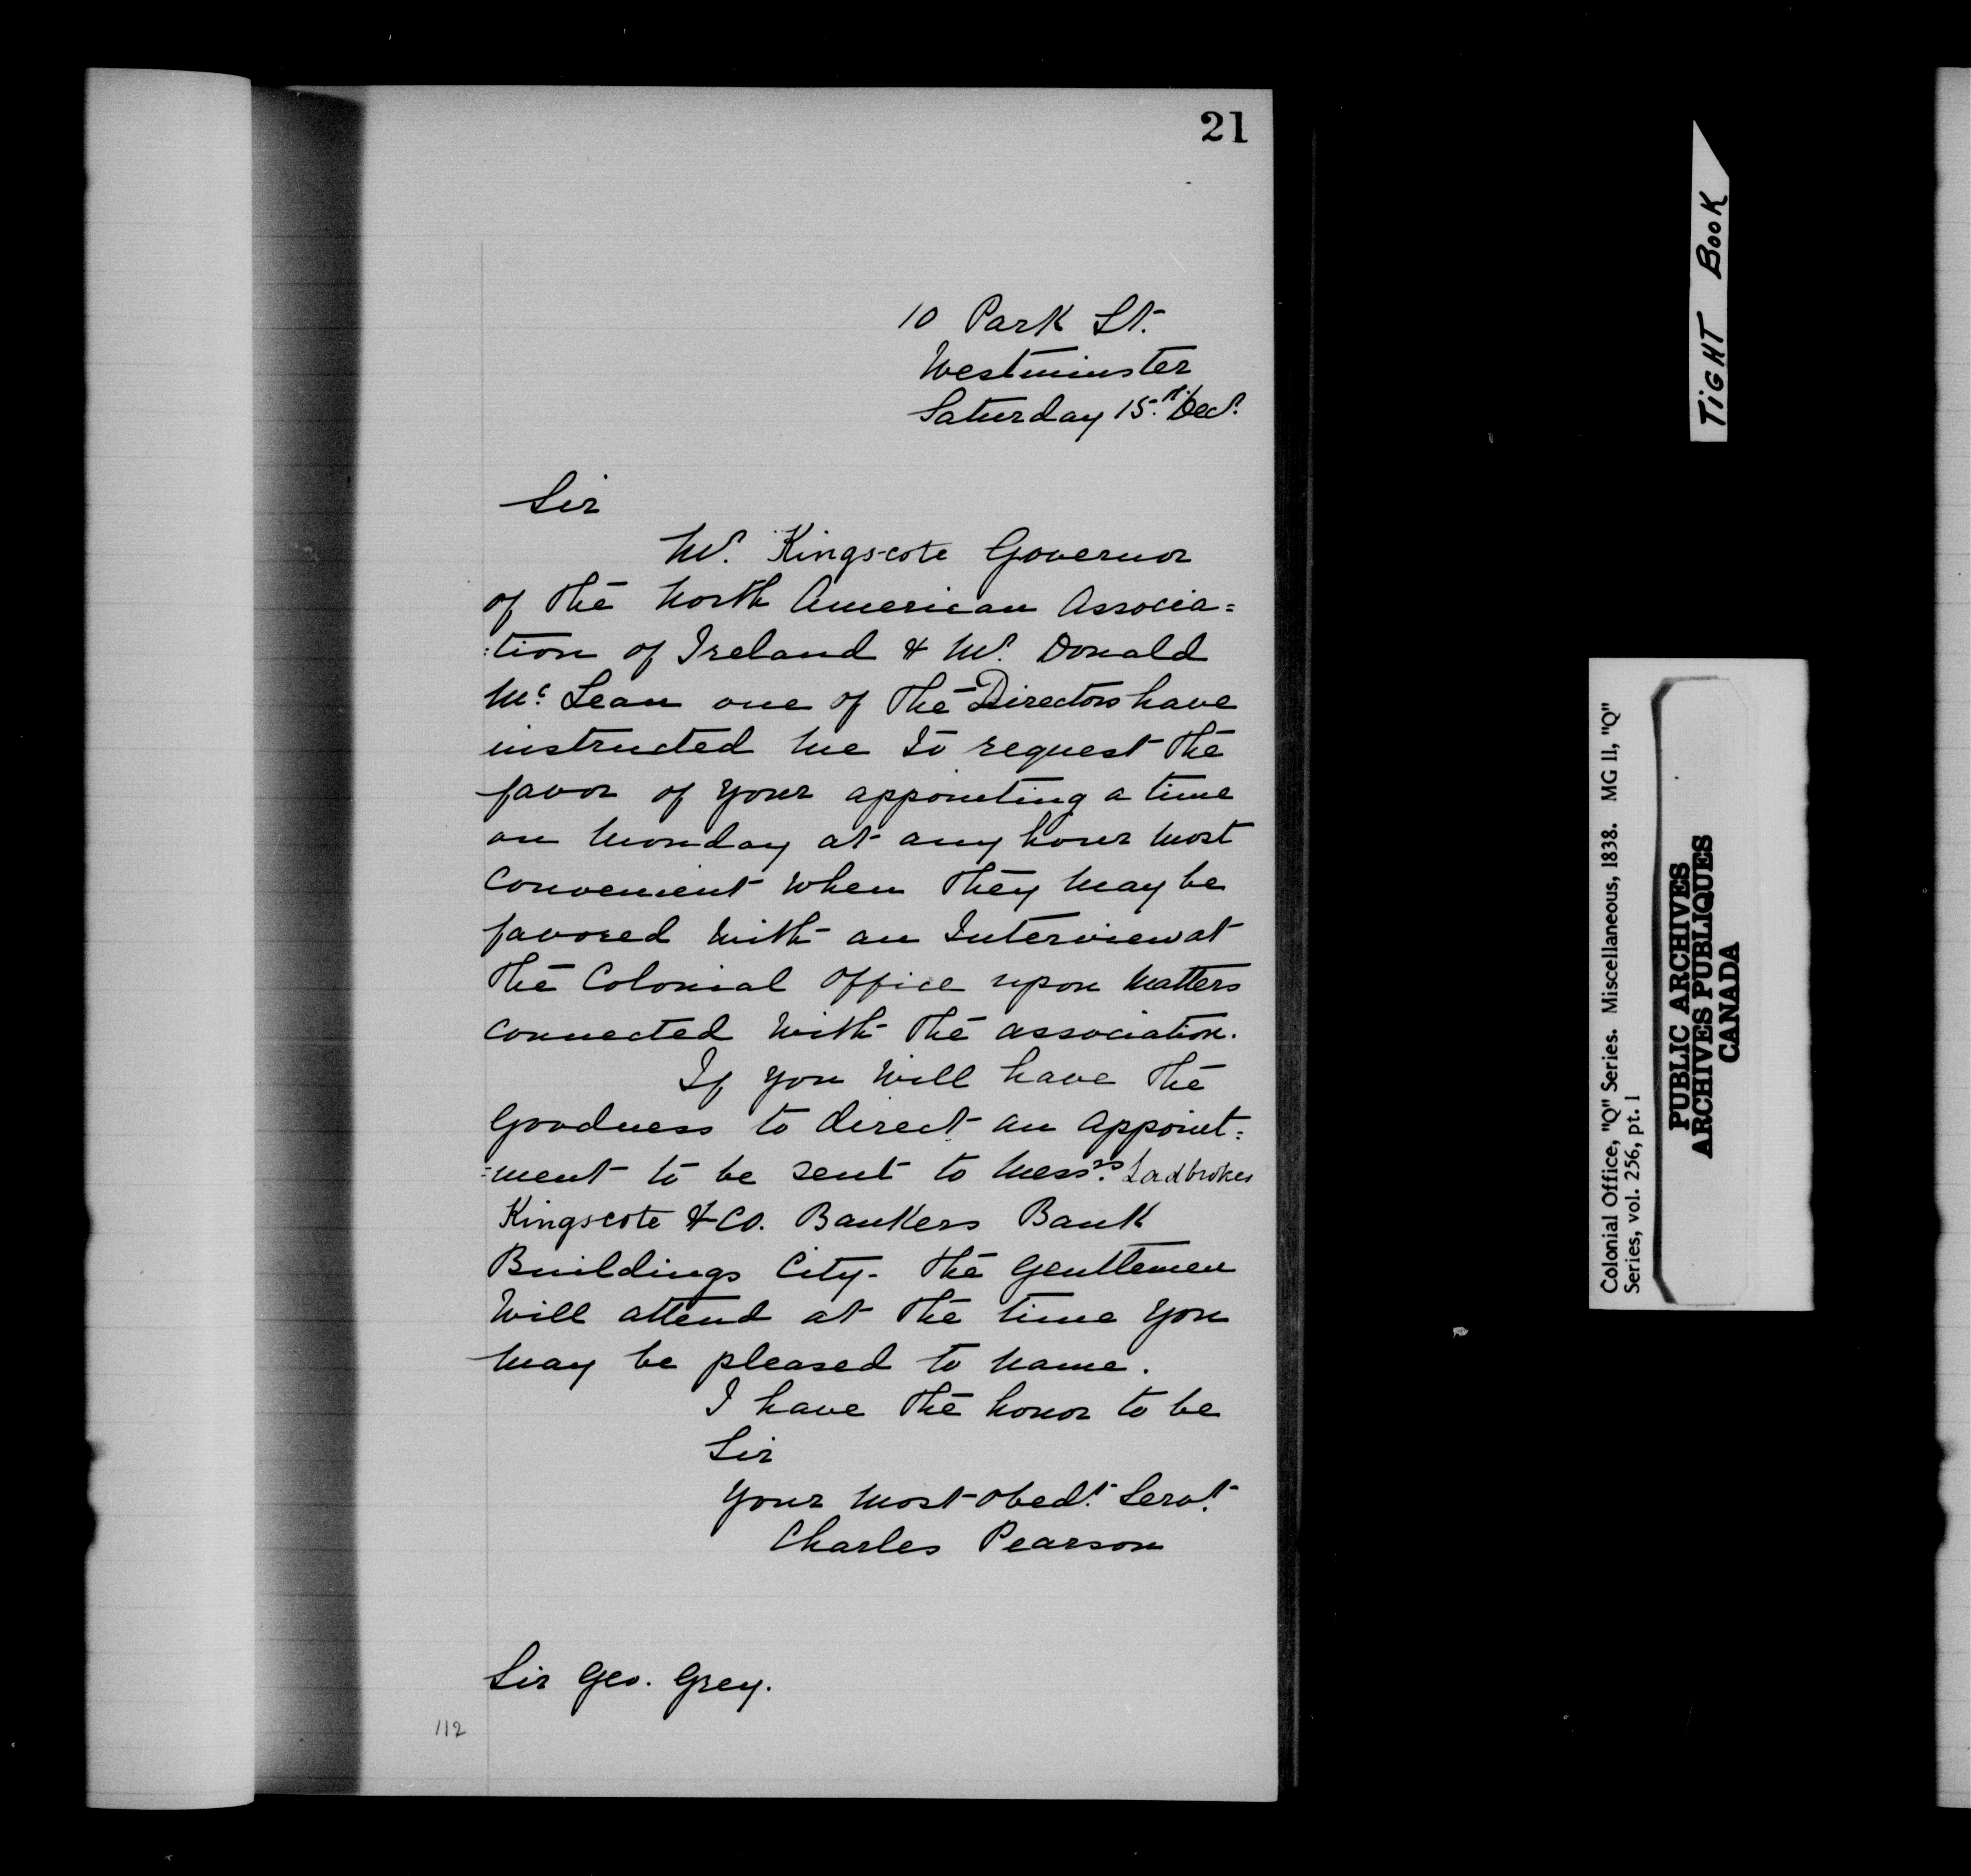 21
10 Park St.
Westminster
Saturday 15th Decr.
Sir
Mr. Kingscote Governor
of the North American Associa=
=tion of Ireland & Mr. Donald
Mc. Lean one of the Directors have
instructed me to request the
favor of your appointing a time
on Monday at any hour most
convenient when they may be
favored with an Interview at
the Colonial Office upon matters
connected with the association.
If you will have the
goodness to direct an appoint=
=ment to be sent to Messrs. Ladbrokes
Kingscote & Co. Bankers Bank
Buildings City - the gentlemen
will attend at the time you
may be pleased to name.
I have the honor to be
Sir
Your most obedt. Servt.
Charles Pearson
Sir Geo. Grey.
112
TIGHT BOOK
Colonial Office, "Q" Series. Miscellaneous, 1838. MG 11, "Q"
Series, vol. 256, pt. 1
PUBLIC ARCHIVES
ARCHIVES PUBLIQUES
CANADA